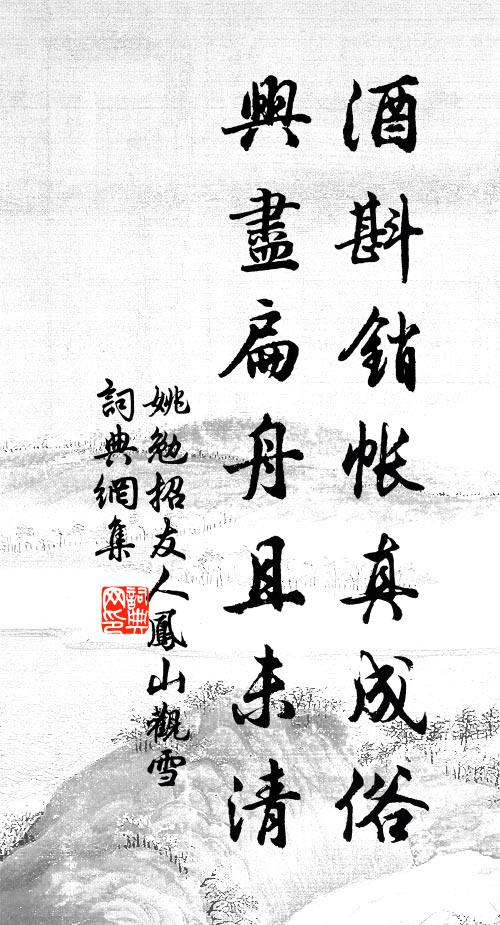 酒斟銷帳真成俗
興盡扁舟且未清
姚勉招友人鳳山觀雪
詞典網集
詞典網印